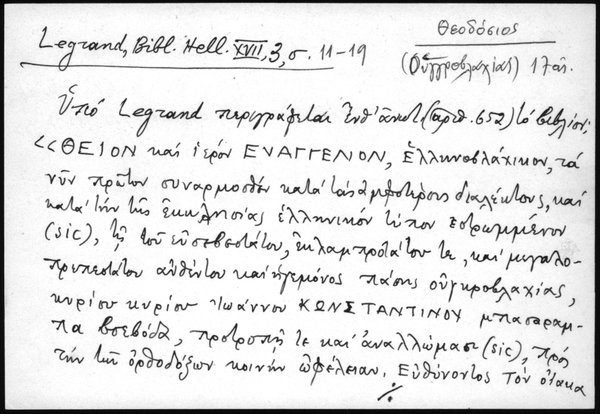 Legrand, Bibl. Hell. XVII, 3, σ. 11-19
Θεοδόσιος
(Οὐγγροβλαχίας) 17 αἰ.
Ὑπὸ Legrand περιγράφεται ἐνθ' ἀνωτ. (ἀριθ. 652) τὸ βιβλίον:
<<ΘΕΙΟΝ καὶ ἱερὸν ΕΥΑΓΓΕΛΙΟΝ, ἑλληνοβλάχικον, τὰ
νῦν πρῶτον συναρμοσθὲν κατὰ τὰς ἀμφοτέρους διαλέκτους, καὶ
κατὰ τὴν τῆς ἐκκλησίας ἑλληνικὸν τύπον ἐστρωμμένον
(sic), τῇ τοῦ εὐσεβεστάτου, ἐκλαμπροτάτου τε, καὶ μεγαλο-
πρεπεστάτου αὐθέντου καὶ ἡγεμόνος πάσης οὐγκροβλαχίας,
κυρίου κυρίου Ἰωάννου ΚΩΝΣΤΑΝΤΙΝΟΥ μπασαραμ-
πα βοεβόδα, προτροπῇ τε καὶ ἀναλλώμασι (sic), πρὸς
τὴν τῶν ὀρθοδόξων κοινὴν ὠφέλειαν. Εὐθύνοντος τὸν οἴακα
./.